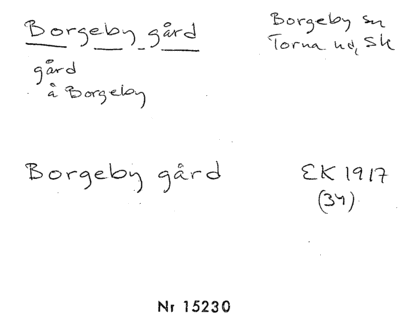 Borgeby gård
Borgeby sn
Torna hd, Sk
gård
å Borgeby
Borgeby gård
EK 1917
(34)
Nr 15230